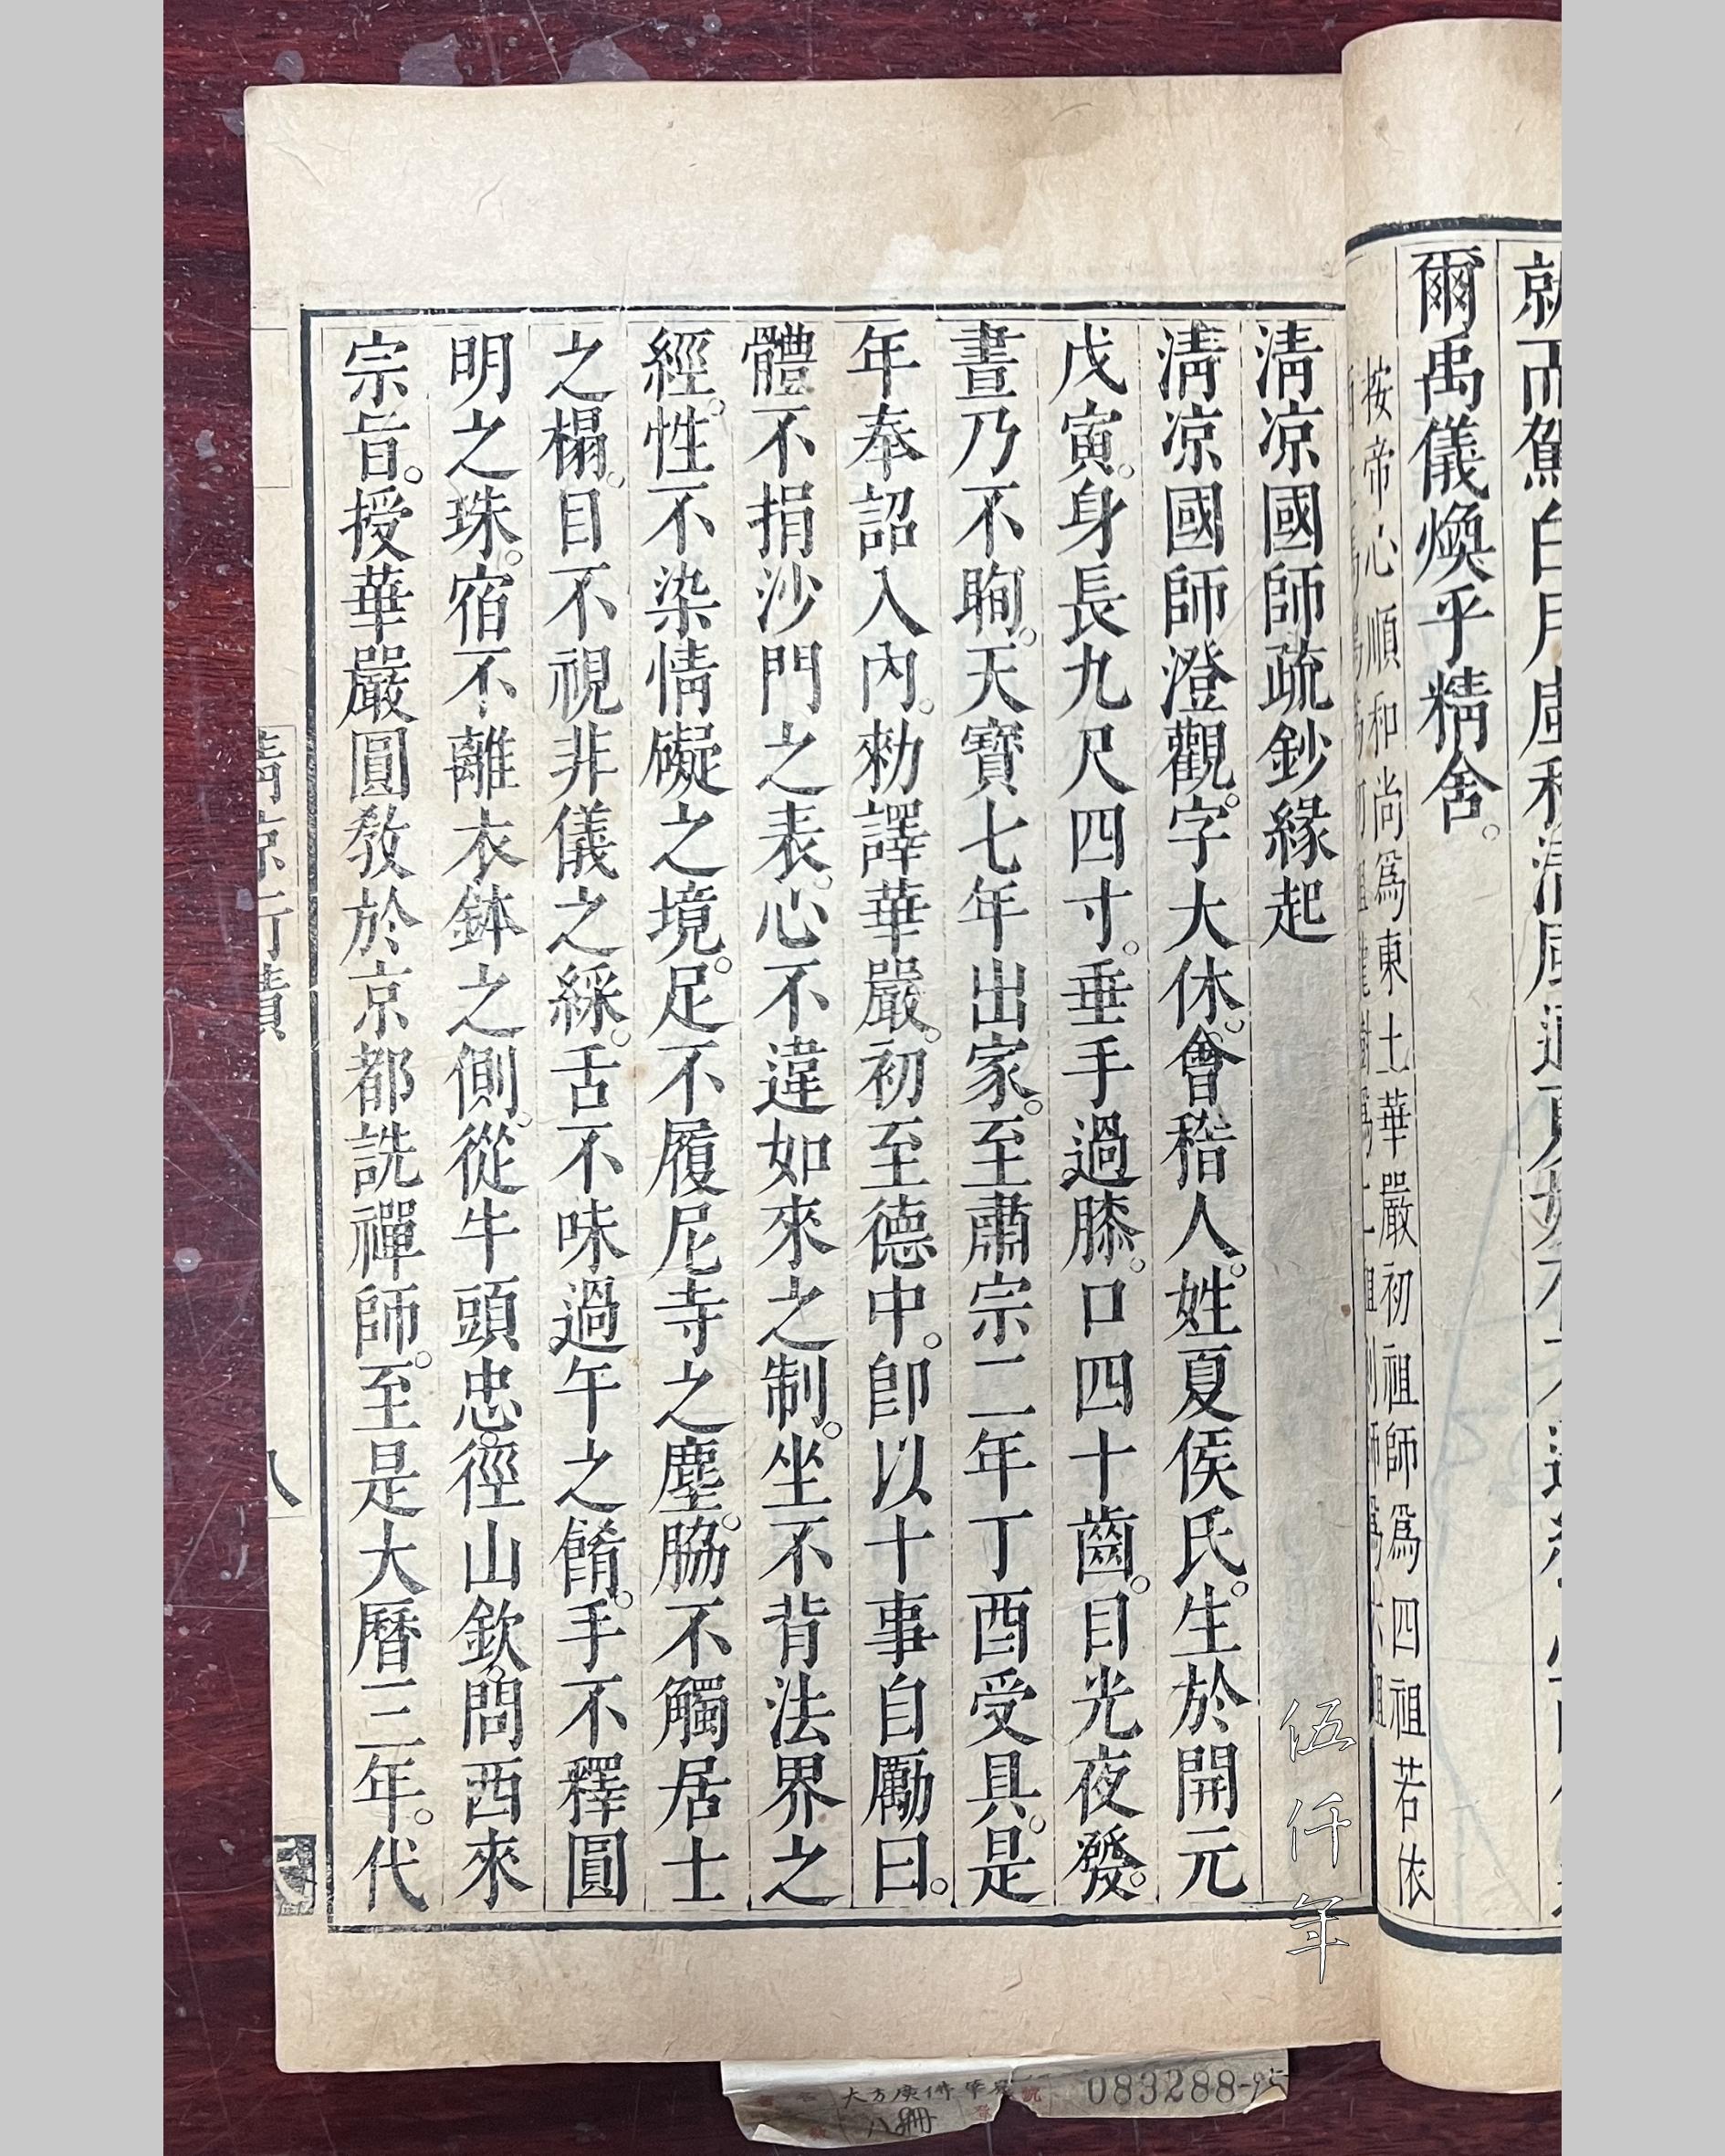 爾禹儀煥乎精舍。
按帝心順和尚爲東土華嚴初祖師爲四祖若依
淸凉國師疏鈔緣起
淸凉國師澄觀。字大休。會稽人。姓夏侯氏。生於開元
戊寅。身長九尺四寸。垂手過膝。口四十齒。目光夜發。
晝乃不眴。天寶七年出家。至肅宗二年丁酉受具。是
年奉詔入內。勅譯華嚴。初至德中。卽以十事自勵曰。
體不捐沙門之表。心不違如來之制。坐不背法界之
經。性不染情礙之境。足不履尼寺之塵。脇不觸居士
之榻。目不視非儀之綵。舌不味過午之餚。手不釋圓
明之珠。宿不離衣鉢之側。從牛頭忠。徑山欽。問西來
宗旨。授華嚴圓敎於京都詵禪師。至是大曆三年。代
淸凉行蹟
八
伍仟年
大方廣佛華嚴
八冊
083288-95